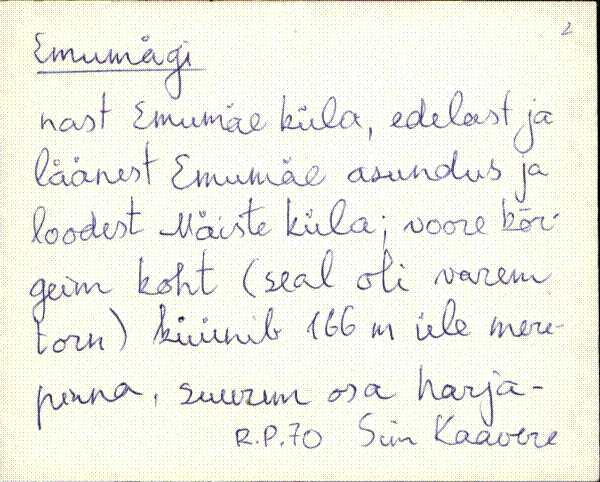 2
Emumägi
nast Emumäe küla, edelast ja
läänest Emumäe asundus ja
loodest Mäiste küla; voore kõr-
geim koht (seal oli varem
torn) küünib 166 m üle mere-
pinna, suurem osa harja-
R.P.70 Siim Kaavere